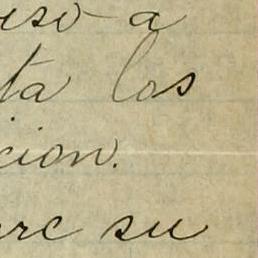 eso a
ta los
cion.
re su